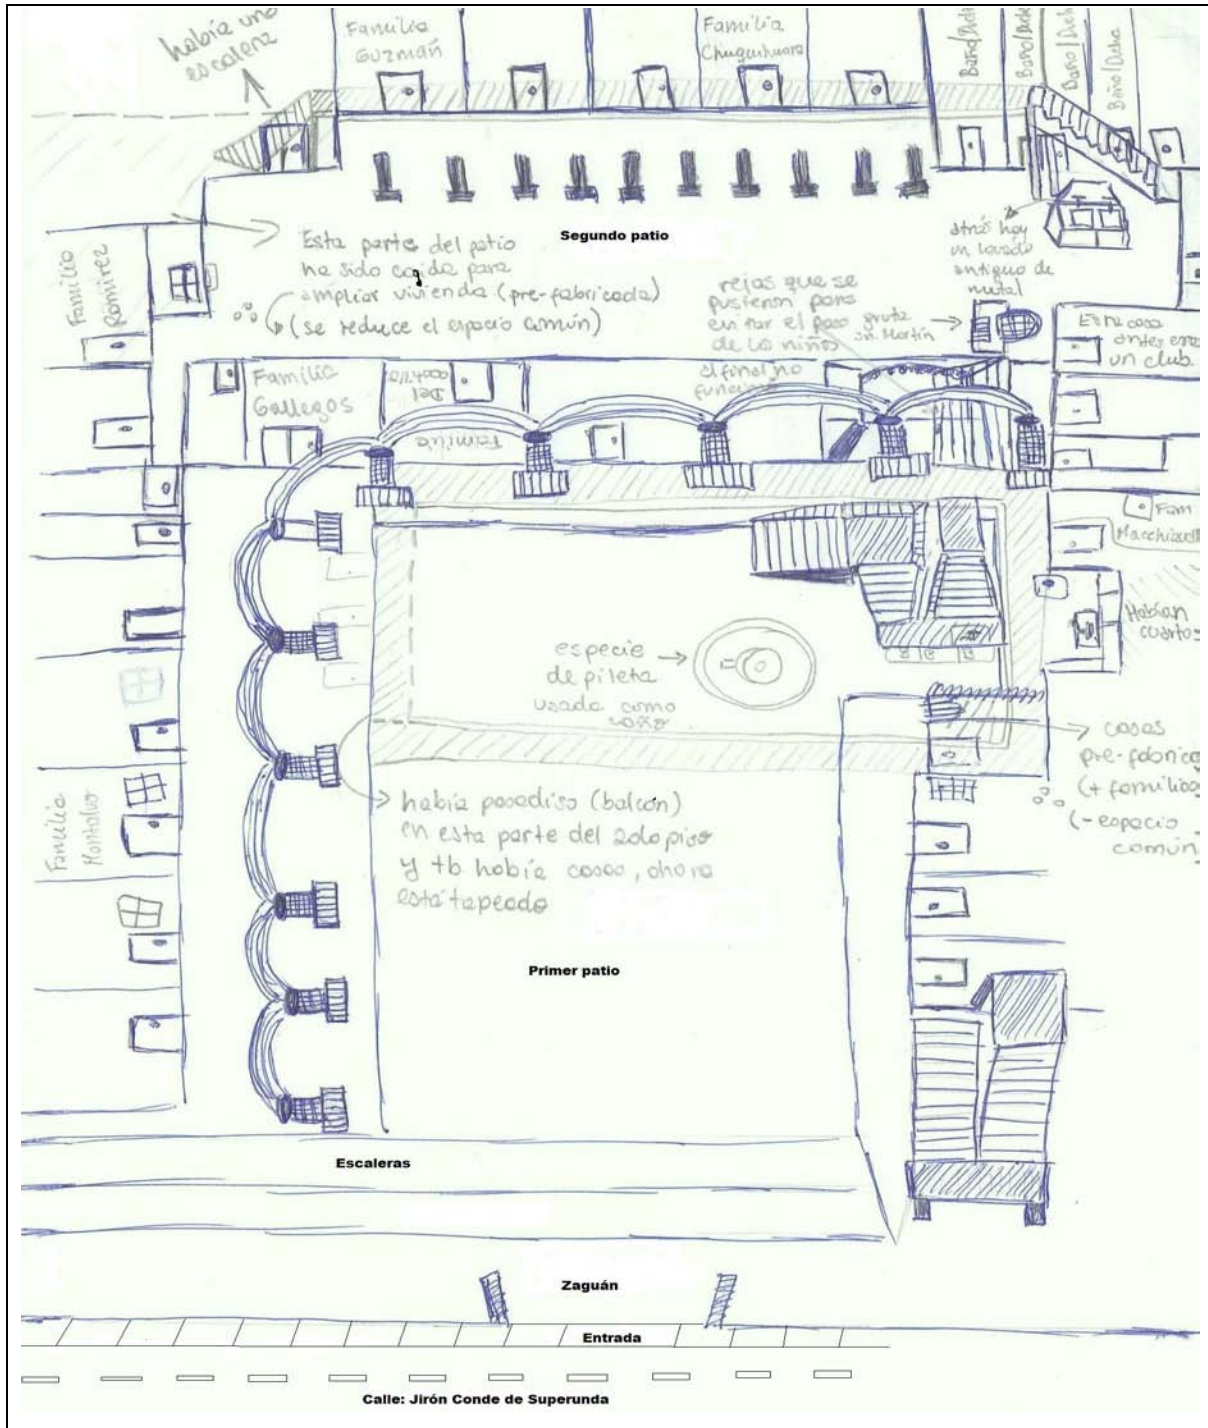 había una
escalera
Familia
Guzmán
Familia
Chuquihuara
Baño/Ducha
Baño/Ducha
Baño/Ducha
Baño/Ducha
Segundo patio
Esta parte del patio
ha sido cogida para
ampliar vivienda (pre-fabricada)
(se reduce el espacio común)
Familia
Ramirez
atrás hay
un lavado
antiguo de
metal
rejas que se
pusieron para
evitar el paso
de los niños
al final no
funcionó
gruta
Sn. Martín
Esta casa
antes era
un club
Familia
Gallegos
Familia
Del
Castillo
Fam
Habían
cuartos
especie
de pileta
usada como
baño
casas
pre-fabrica
(+ familias
(- espacio
común
había pasadiso (balcón)
en esta parte del 2do piso
y tb había casas, ahora
está tapeado
Familia
Montalvo
Primer patio
Escaleras
Zaguán
Entrada
Calle: Jirón Conde de Superunda